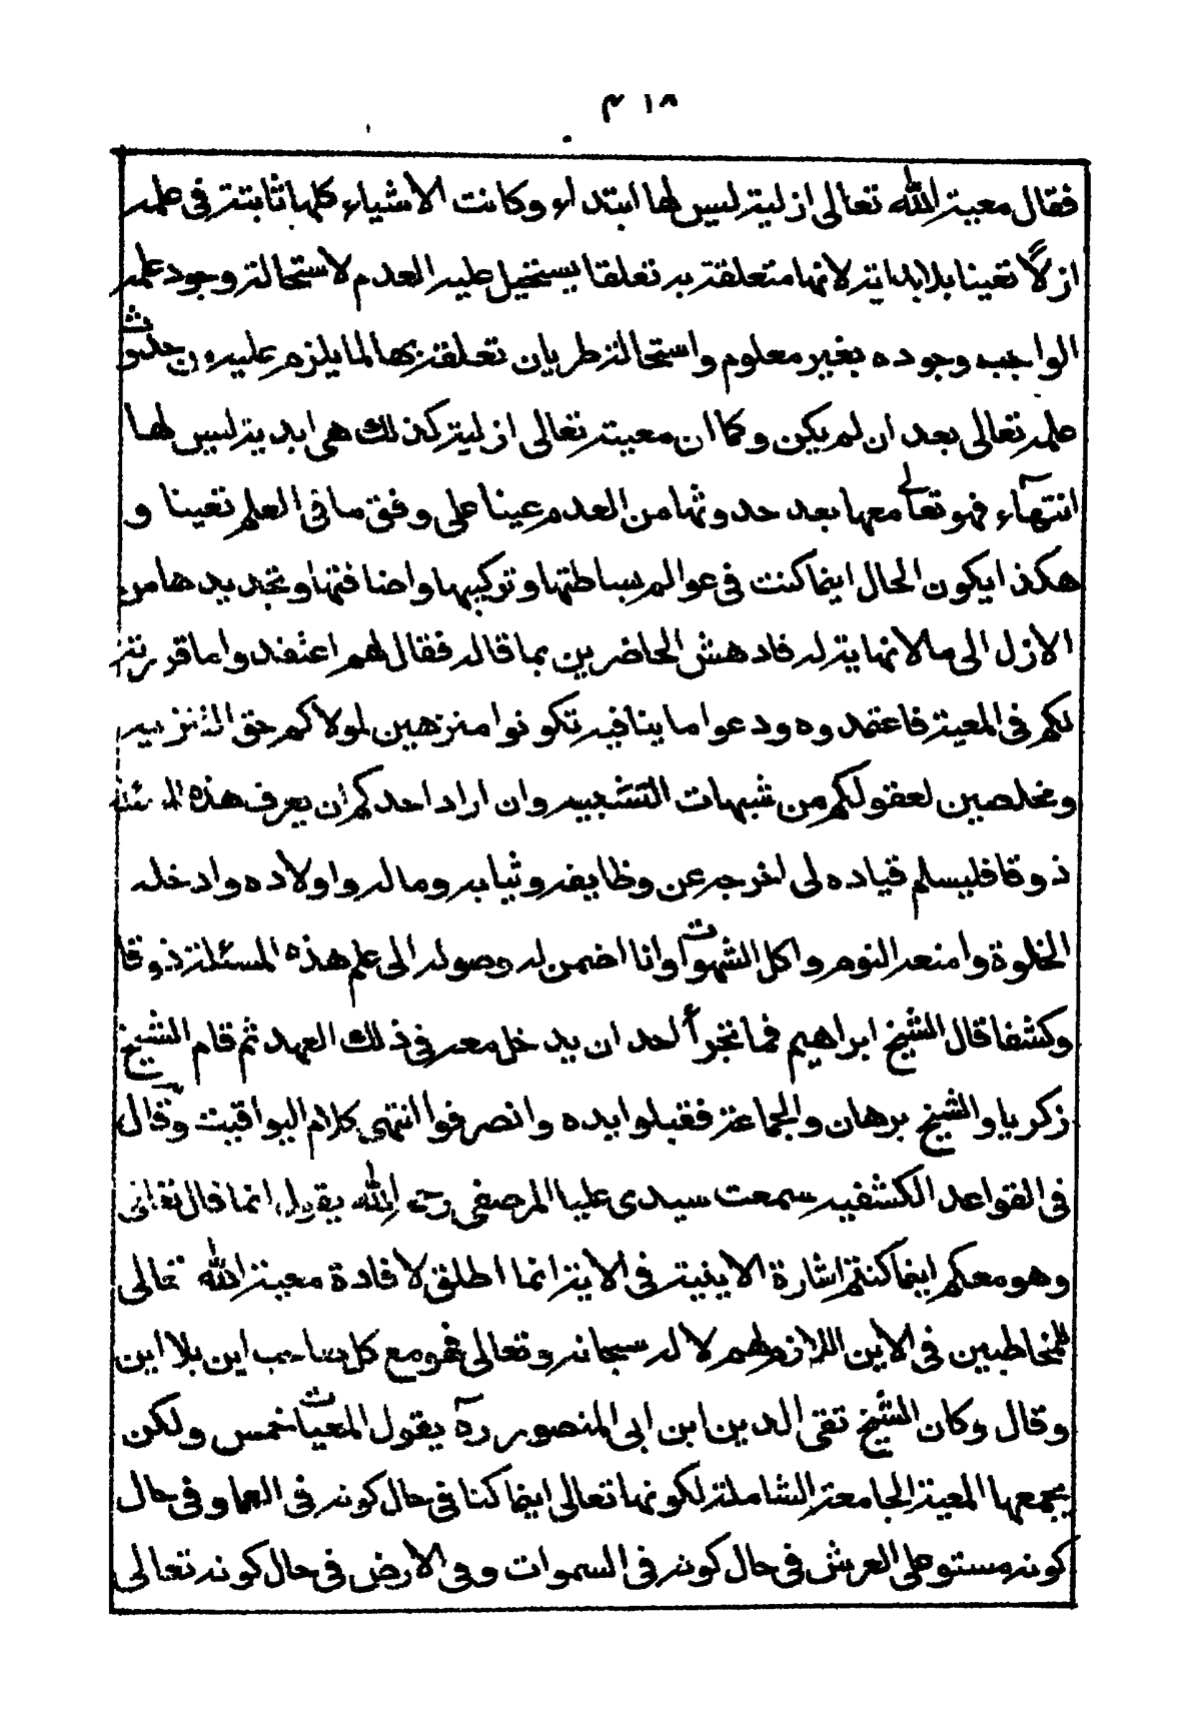 ٤١٨
فقال معية الله تعالى ازلية ليس لها ابتداء وكانت الاشياء كلها ثابتة فى علمه
ازلاً تعينا بلا بداية لانها متعلقة به تعلقا يستحيل عليه العدم لاستحالة وجود علمه
الواجب وجوده بغير معلوم واستحالة طريان تعلقة بها لما يلزم عليه من حدوث
علمه تعالى بعد ان لم يكن وكما ان معيته تعالى ازلية كذلك هى ابدية ليس لها
انتهآء فهو تعالى معها بعد حدوثها من العدم عينا على وفق ما فى العلم تعينا و
هكذا يكون الحال اينما كنت فى عوالم بساطتها وتركيبها واضافتها وتجديدها من
الازل الى ما لا نهاية له فادهش الحاضرين بما قاله فقال لهم اعتقدوا ما قررته
لكم فى المعية فاعتمدوه ودعوا ما ينافيه تكونوا منزهين لمولاكم حق التنزيه
ومخلصين لعقولكم من شبهات التشبيه وان اراد احدكم ان يعرف هذه المسئلة
ذوقا فليسلم قياده لى لخرجه عن وظايفه وثيابه وماله واولاده وادخله
الخلوة وامنعه النوم واكل الشهوات وانا اضمن له وصوله الى علم هذه المسئلة ذوقا
وكشفا قال الشيخ ابراهيم فما تجرأ لحد ان يدخل معه فى ذلك العهد ثم قام الشيخ
زكريا والشيخ برهان والجماعة فقبلوا يده وانصرفوا انتهى كلام اليواقيت وقال
فى القواعد الكشفيه سمعت سيدى عليا المرصفى رحمه الله يقول انما قال تعالى
وهو معكم اينما كنتم اشارة الاينية فى الاية انما اطلق لافادة معية الله تعالى
للمخاطبين فى الاين اللازم لهم لا له سبحانه وتعالى فهو مع كل صاحب اين بلا اين
وقال وكان الشيخ تقى الدين ابن ابى المنصور رہ يقول المعيات خمس ولكن
يجمعها المعية الجامعة الشاملة لكونها تعالى اينما كنا فى حال كونه فى العما وفى حال
كونه مستو على العرش فى حال كونه فى السموات وفى الارض فى حال كونه تعالى